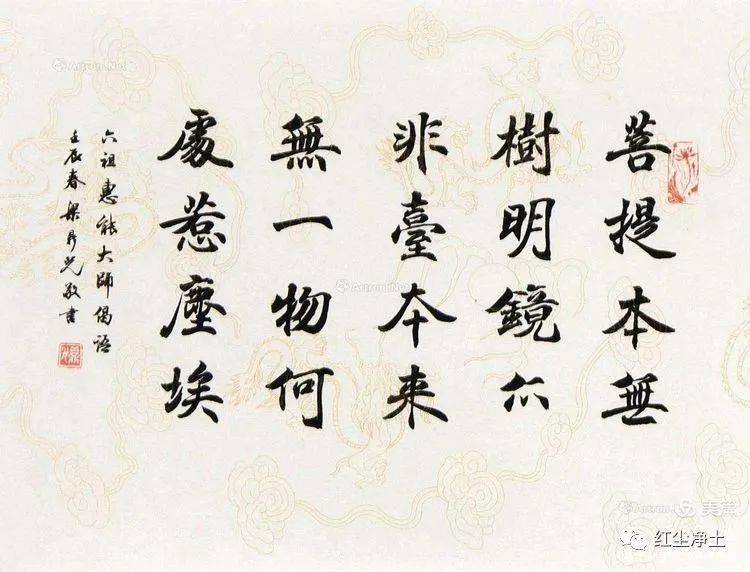 菩提本無
樹明鏡亦
非臺本来
無一物何
處惹塵埃
六祖惠能大師偈語
壬辰春梁丹光敬書
Artron.Net
美篇
红尘净土